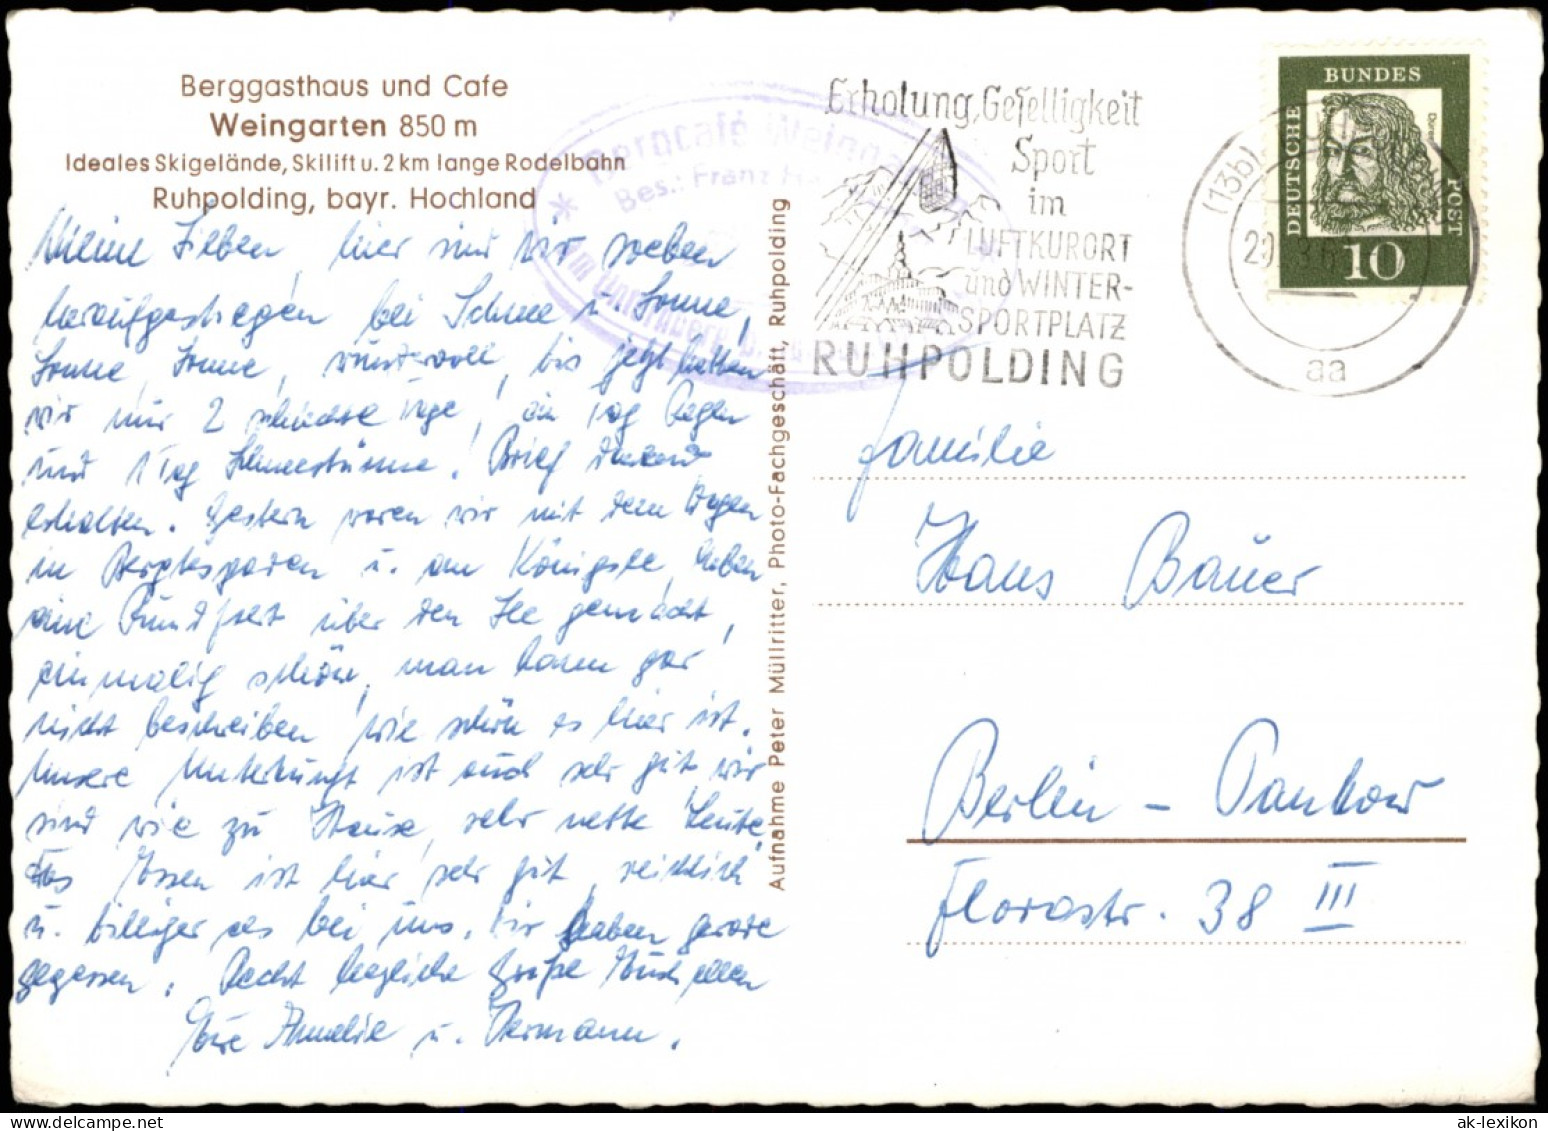 Berggasthaus und Cafe
Weingarten 850 m
Ideales Skigelände, Skilift u. 2 km lange Rodelbahn
Ruhpolding, bayr. Hochland
Meine Lieben, hier sind wir soeben
heraufgestiegen bei Schnee u. Sonne,
Sonne, Sonne, wundervoll, bis jetzt hatten
wir nur 2 schlechte Tage, ein Tag Regen
und 1 Tag Schneestürme. Brief dankend
erhalten. Gestern waren wir mit dem Wagen
in Berchtesgaden u. am Königsee, haben
eine Rundfahrt über den See gemacht,
einmalig schön, man kann gar
nicht beschreiben wie schön es hier ist.
Unsere Unterkunft ist auch sehr gut wir
sind wie zu Hause, sehr nette Leute,
das Essen ist hier sehr gut, reichlich
u. billiger als bei uns. Wir haben gerade
gegessen. Recht herzliche Grüße Euch allen
Eure Annelie u. Hermann.
Aufnahme Peter Müllritter, Photo-Fachgeschäft, Ruhpolding
* Bergcafé Weingarten *
Bes.: Franz
Erholung, Geselligkeit
Sport
im
LUFTKURORT
und WINTER-
SPORTPLATZ
RUHPOLDING
(13b) RUHPOLDING
aa
DEUTSCHE BUNDESPOST
10
Familie
Hans Bauer
Berlin - Pankow
Florastr. 38 III
ak-lexikon